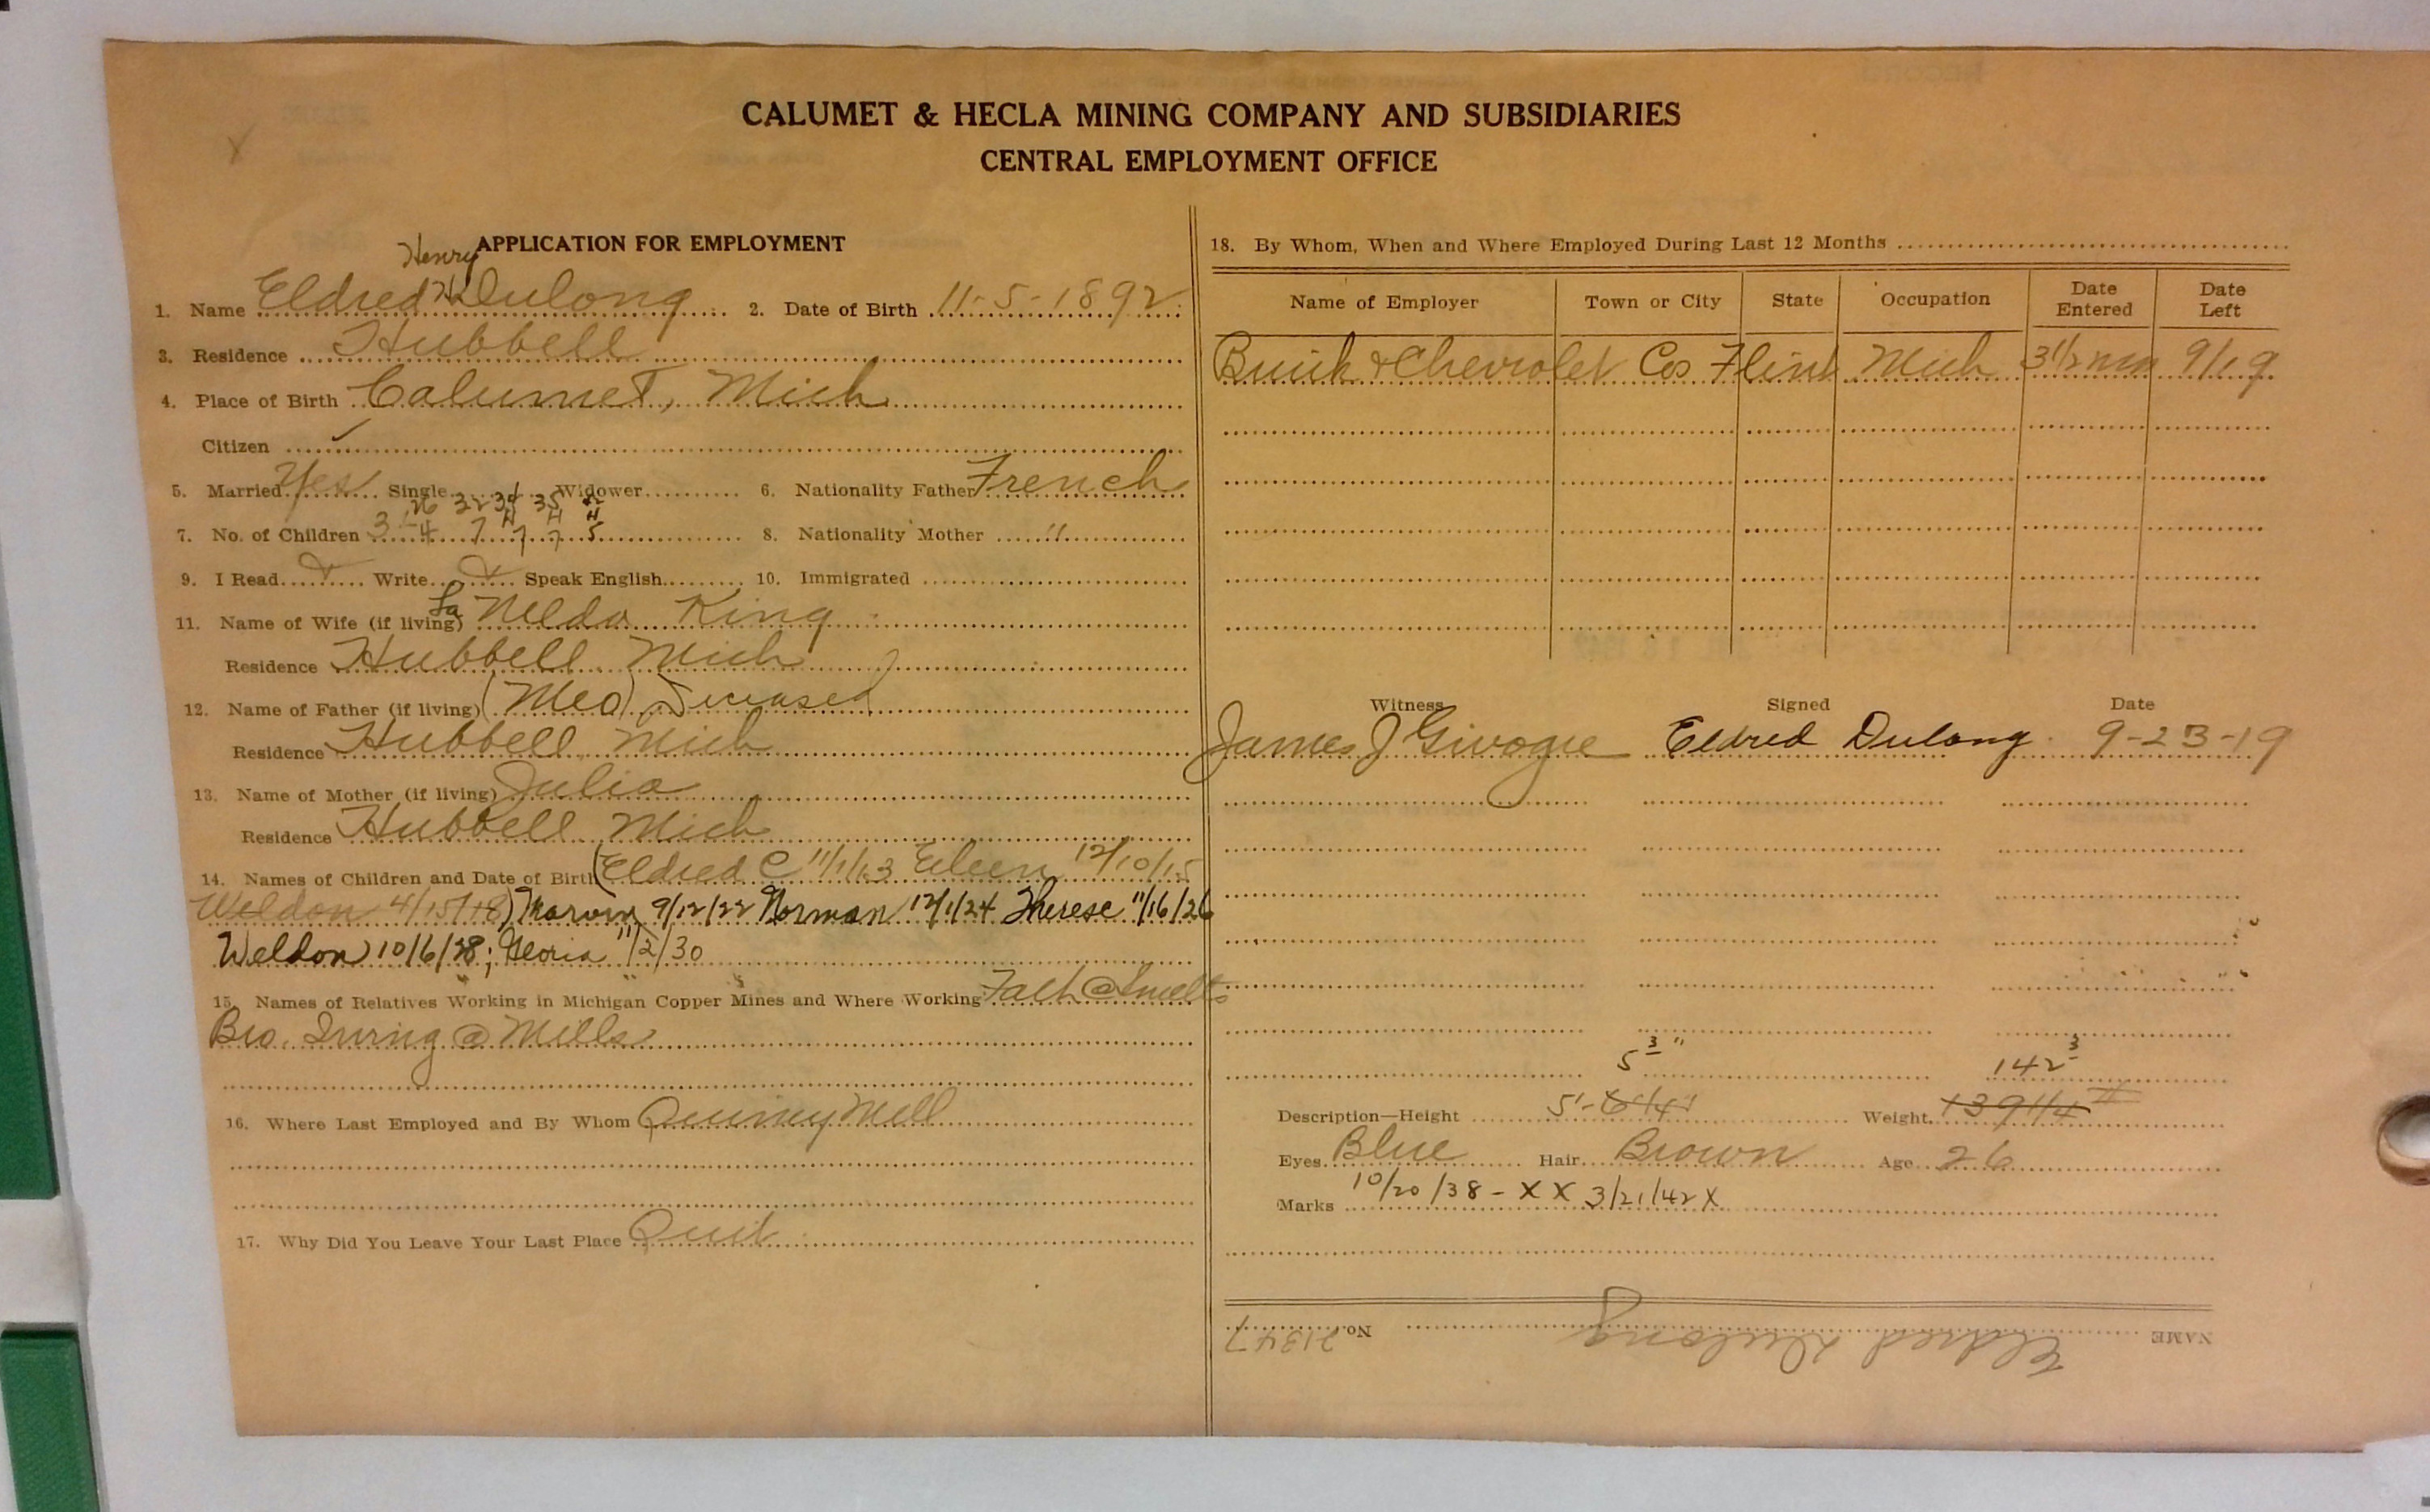 CALUMET & HECLA MINING COMPANY AND SUBSIDIARIES
CENTRAL EMPLOYMENT OFFICE
APPLICATION FOR EMPLOYMENT
Henry
1. Name Eldred H. Dulong 2. Date of Birth 11-5-1892
3. Residence Hubbell
4. Place of Birth Calumet, Mich
Citizen ✓
5. Married Yes Single Widower 6. Nationality Father French
26 32 34 35 42
7. No. of Children 3 4 7 7 7 5 8. Nationality Mother "
9. I Read Write Speak English 10. Immigrated
11. Name of Wife (if living) La Nelda King
Residence Hubbell Mich
12. Name of Father (if living) (Meo) Deceased
Residence Hubbell Mich
13. Name of Mother (if living) Julia
Residence Hubbell Mich
14. Names of Children and Date of Birth (Eldred C 11/1/13 Eileen 12/10/15
Weldon 4/15/18) Marvin 9/12/22 Norman 12/1/24 Therese 11/16/26
Weldon 10/6/28; Gloria 11/2/30
15. Names of Relatives Working in Michigan Copper Mines and Where Working Fath @ Smelts
Bro. Irving @ Mills
16. Where Last Employed and By Whom Quincy Mill
17. Why Did You Leave Your Last Place Quit
18. By Whom, When and Where Employed During Last 12 Months
Name of Employer Town or City State Occupation Date Entered Date Left
Buick & Chevrolet Cos Flint Mich 3 1/2 mn 9/19
Witness Signed Date
James J Givogie Eldred Dulong 9-23-19
5 3" 142 3
Description—Height 5'-6 1/4" Weight 139 1/4 #
Eyes Blue Hair Brown Age 26
Marks 10/20/38 - X X 3/21/42 X
NAME Eldred Dulong No. 21347